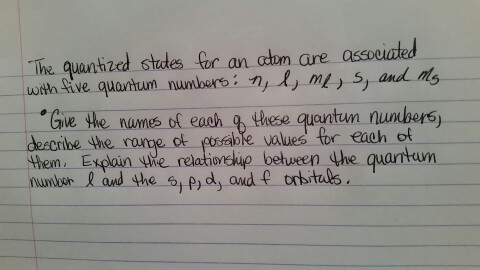 The quantized states for an atom are associated
with five quantum numbers: n, l, ml, s, and ms
• Give the names of each of these quantum numbers,
describe the range of possible values for each of
them. Explain the relationship between the quantum
number l and the s, p, d, and f orbitals.